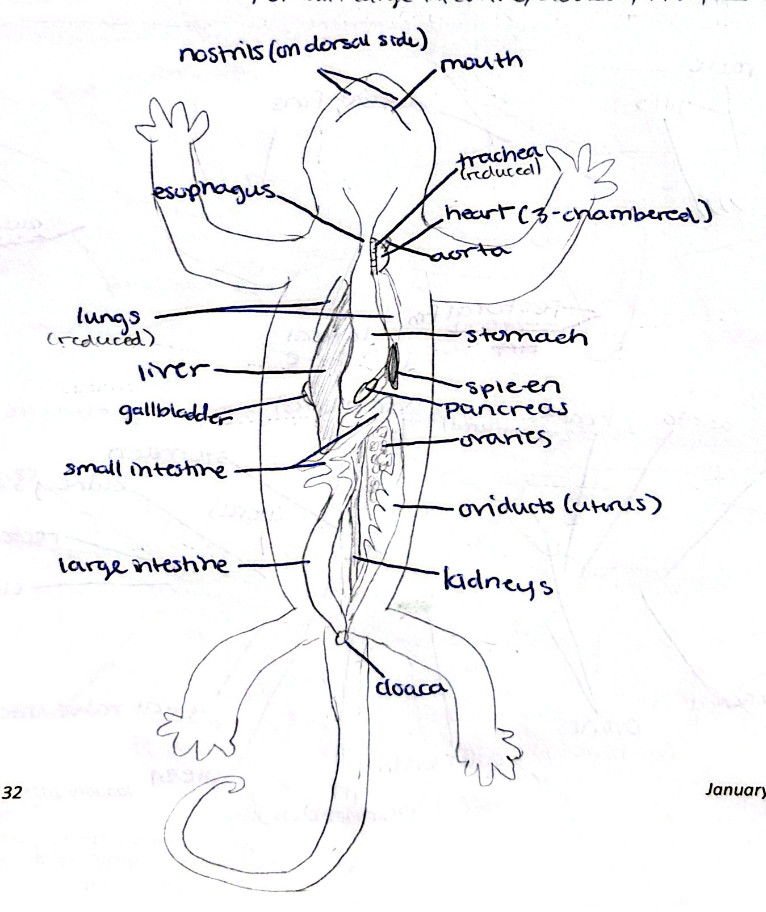 nostrils (on dorsal side)
mouth
trachea
(reduced)
esophagus
heart (3-chambered)
aorta
lungs
(reduced)
stomach
liver
spleen
gallbladder
pancreas
ovaries
small intestine
oviducts (uterus)
large intestine
kidneys
cloaca
32
January